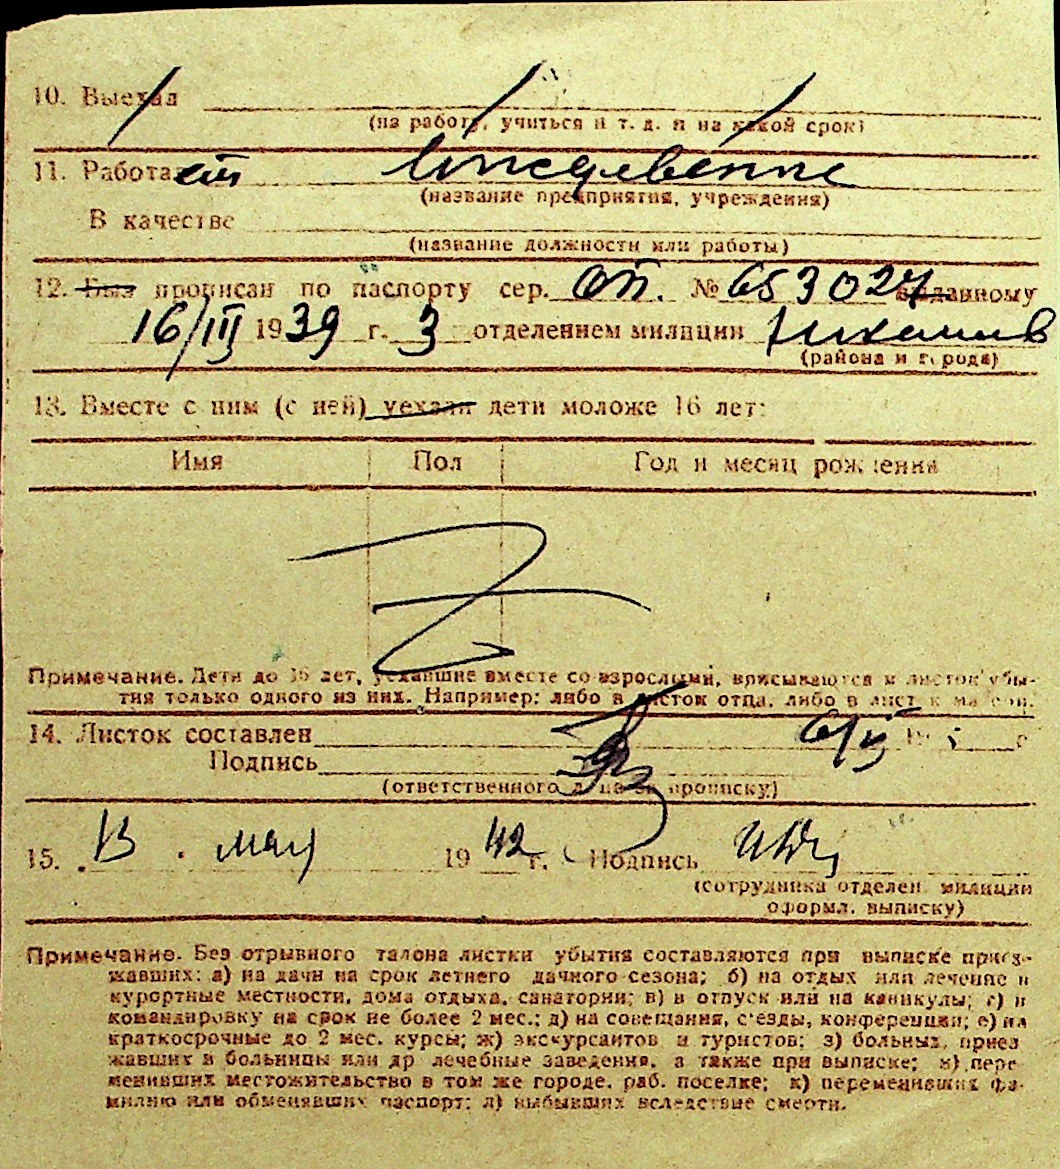 10. Выехал
(на работу, учиться и т. д. и на какой срок)
11. Работает иждивение
(название предприятия, учреждения)
В качестве
(название должности или работы)
12. Был прописан по паспорту сер. ОП. № 653027 выданному
16/III 1939 г. 3 отделением милиции
(района и города)
13. Вместе с ним (с ней) уехали дети моложе 16 лет:
Имя Пол Год и месяц рождения
Примечание. Дети до 16 лет, уехавшие вместе со взрослыми, вписываются в листок убы-
тия только одного из них. Например: либо в листок отца, либо в листок матери.
14. Листок составлен
Подпись
(ответственного лица за прописку)
15. 13 мая 1942 г. Подпись
(сотрудника отделен. милиции
оформл. выписку)
Примечание. Без отрывного талона листки убытия составляются при выписке приез-
жавших: а) на дачи на срок летнего дачного сезона; б) на отдых или лечение в
курортные местности, дома отдыха, санатории; в) в отпуск или на каникулы; г) в
командировку на срок не более 2 мес.; д) на совещания, с'езды, конференции; е) на
краткосрочные до 2 мес. курсы; ж) экскурсантов и туристов; з) больных, приез
жавших в больницы или др лечебные заведения, а также при выписке; и) пере
менивших местожительство в том же городе, раб. поселке; к) переменивших фа-
милию или обменявших паспорт; л) выбывших вследствие смерти.